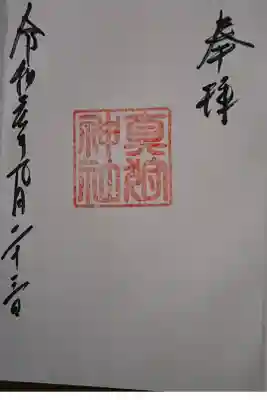 奉拝
真狩
神社
令和元年九月二十三日